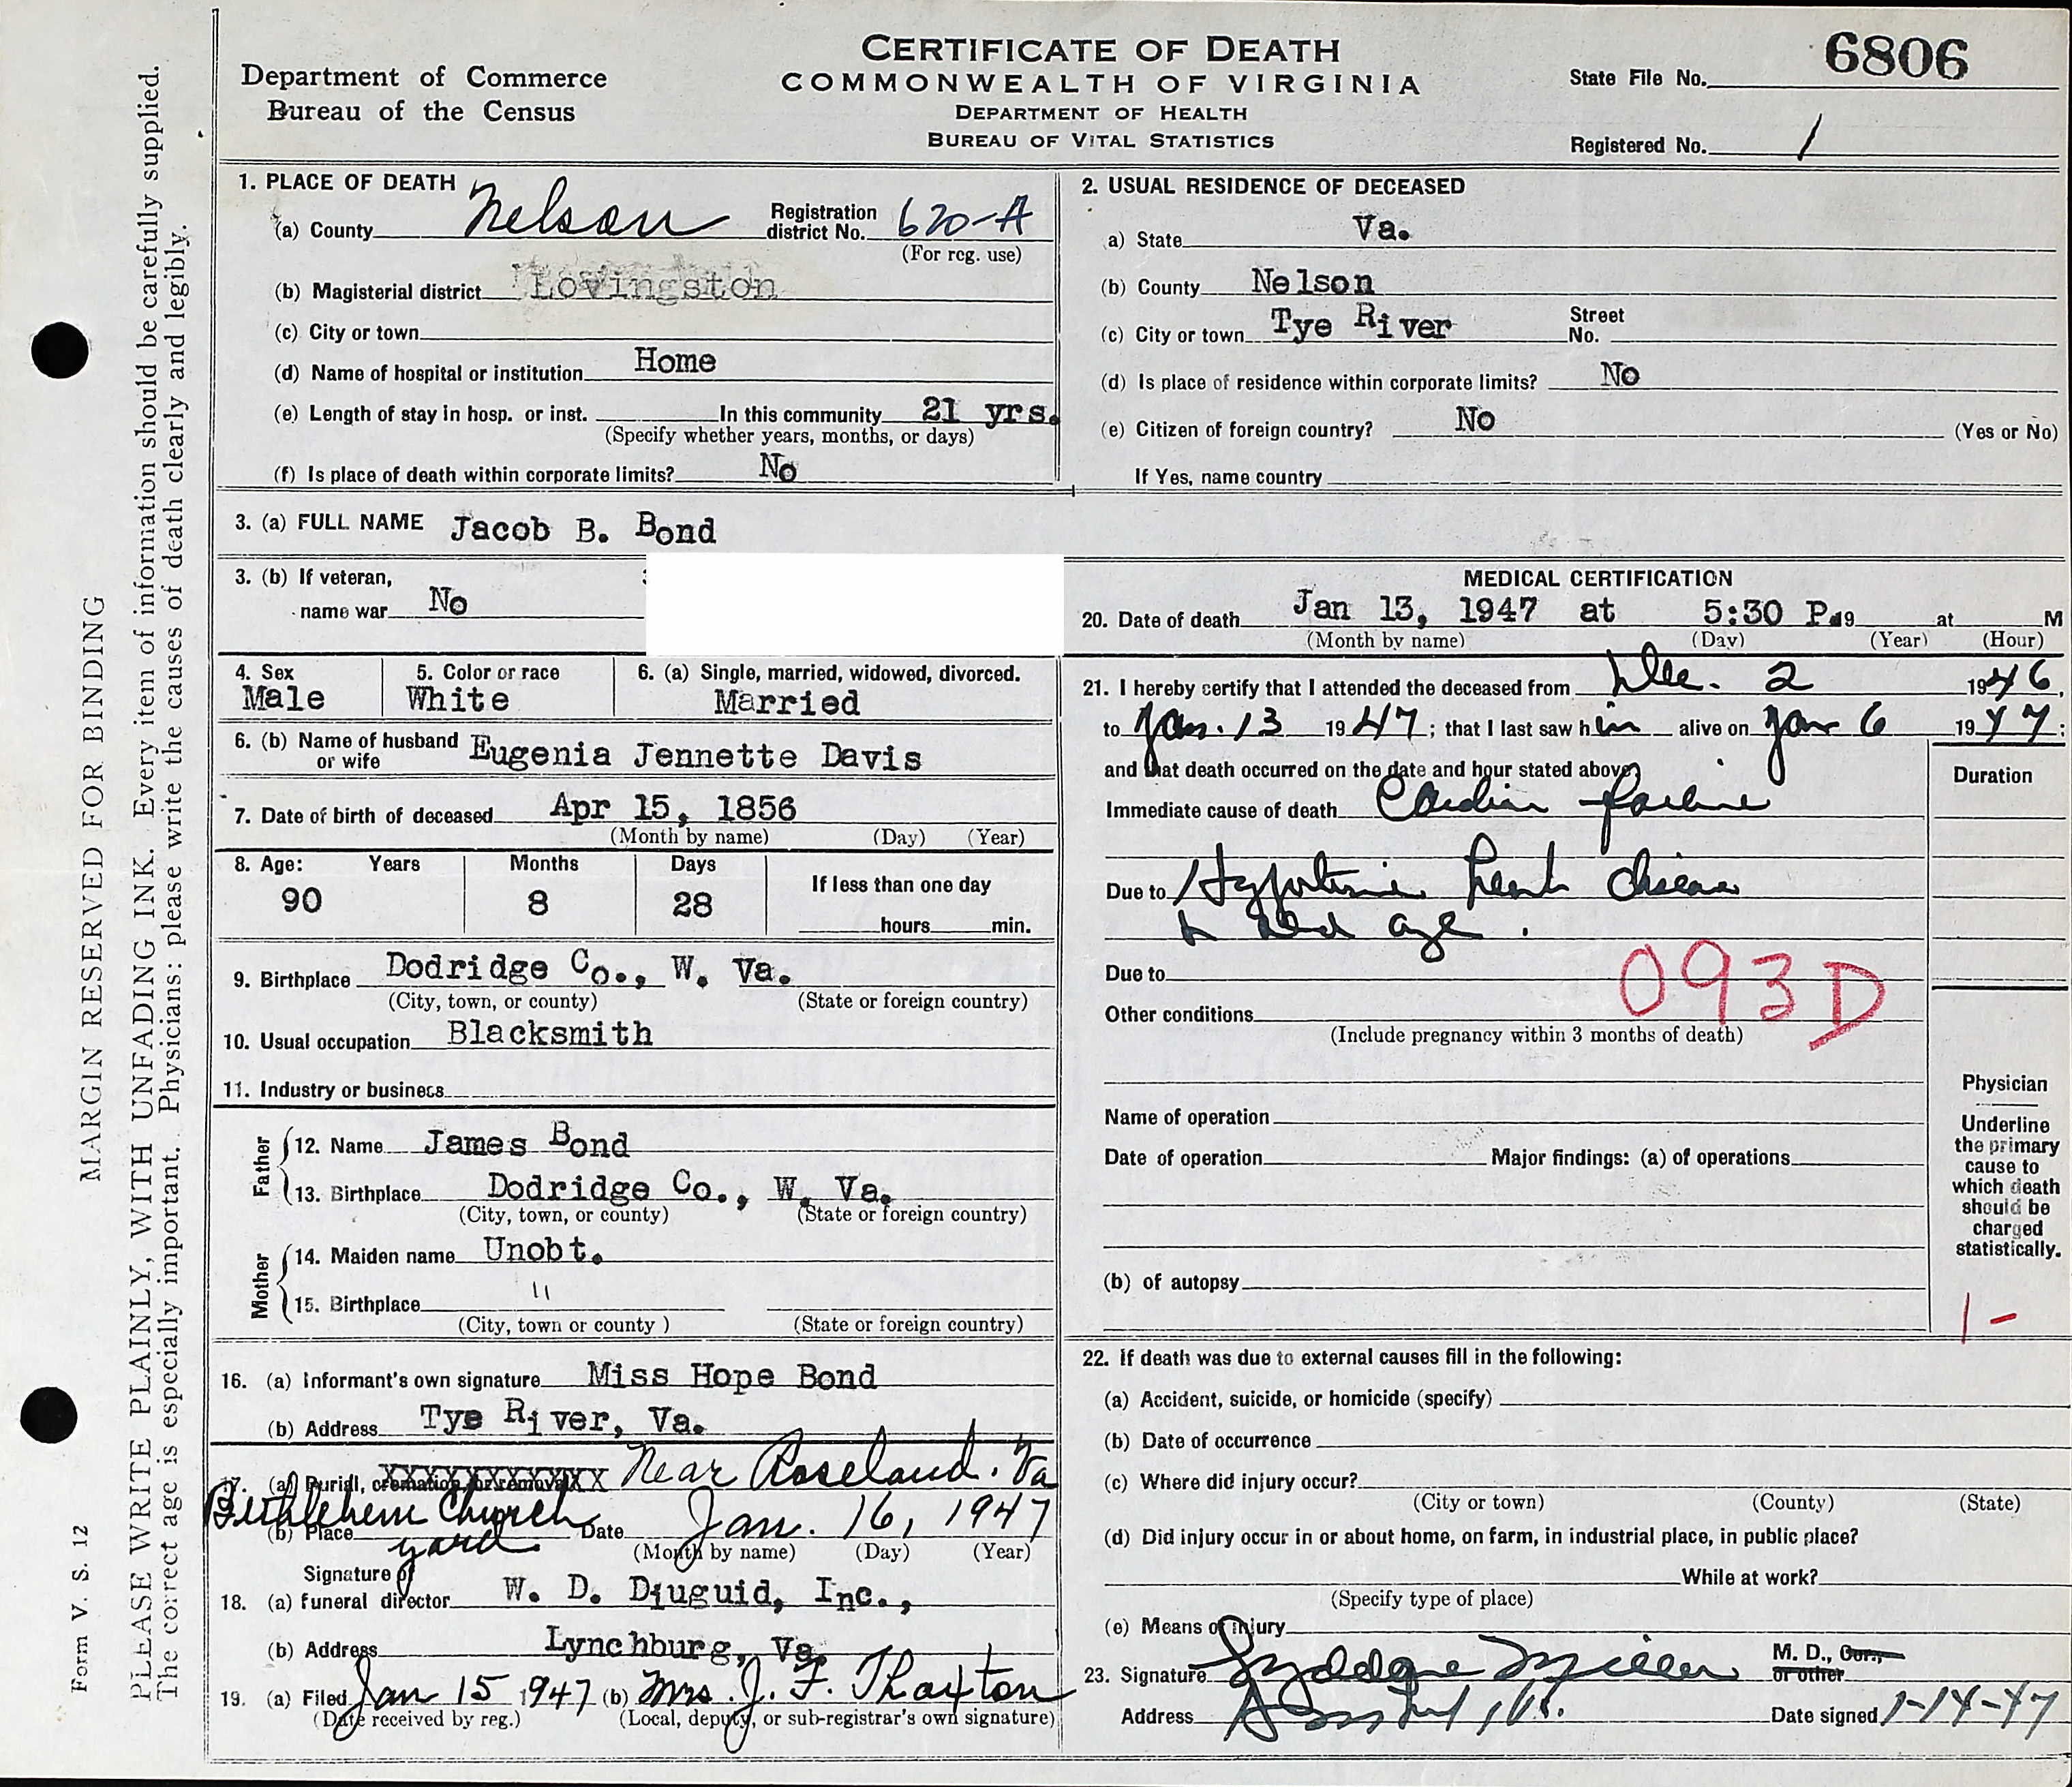 CERTIFICATE OF DEATH
COMMONWEALTH OF VIRGINIA
DEPARTMENT OF HEALTH
BUREAU OF VITAL STATISTICS
Department of Commerce
Bureau of the Census
State File No. 6806
Registered No. 1
MARGIN RESERVED FOR BINDING
PLEASE WRITE PLAINLY, WITH UNFADING INK. Every item of information should be carefully supplied.
The correct age is especially important. Physicians: please write the causes of death clearly and legibly.
Form V. S. 12
1. PLACE OF DEATH
(a) County Nelson Registration district No. 620-A
(For reg. use)
(b) Magisterial district Lovingston
(c) City or town
(d) Name of hospital or institution Home
(e) Length of stay in hosp. or inst. In this community 21 yrs.
(Specify whether years, months, or days)
(f) Is place of death within corporate limits? No
2. USUAL RESIDENCE OF DECEASED
a) State Va.
(b) County Nelson
(c) City or town Tye River Street No.
(d) Is place of residence within corporate limits? No
(e) Citizen of foreign country? No (Yes or No)
If Yes, name country
3. (a) FULL NAME Jacob B. Bond
3. (b) If veteran,
name war No
4. Sex Male
5. Color or race White
6. (a) Single, married, widowed, divorced. Married
6. (b) Name of husband or wife Eugenia Jennette Davis
7. Date of birth of deceased Apr 15, 1856
(Month by name) (Day) (Year)
8. Age: Years Months Days
90 8 28
If less than one day
hours min.
9. Birthplace Dodridge Co., W. Va.
(City, town, or county) (State or foreign country)
10. Usual occupation Blacksmith
11. Industry or business
Father
12. Name James Bond
13. Birthplace Dodridge Co., W. Va.
(City, town, or county) (State or foreign country)
Mother
14. Maiden name Unobt.
15. Birthplace "
(City, town or county ) (State or foreign country)
16. (a) Informant's own signature Miss Hope Bond
(b) Address Tye River, Va.
17. (a) Burial, cremation, or removal Near Roseland. Va
Bethlehem Church yard
(b) Place Date Jan. 16, 1947
(Month by name) (Day) (Year)
Signature of
18. (a) funeral director W. D. Diuguid, Inc.,
(b) Address Lynchburg, Va.
19. (a) Filed Jan 15 1947 (b) Mrs. J. F. Thaxton
(Date received by reg.) (Local, deputy, or sub-registrar's own signature)
MEDICAL CERTIFICATION
20. Date of death Jan 13, 1947 at 5:30 P. 19 at M
(Month by name) (Day) (Year) (Hour)
21. I hereby certify that I attended the deceased from Dec. 2 1946,
to Jan. 13 1947; that I last saw him alive on Jan 6 1947:
and that death occurred on the date and hour stated above.
Duration
Immediate cause of death Cardiac failure
Due to Hypertensive heart disease
& old age.
Due to
093D
Other conditions
(Include pregnancy within 3 months of death)
Name of operation
Date of operation Major findings: (a) of operations
(b) of autopsy
Physician
Underline
the primary
cause to
which death
should be
charged
statistically.
1 -
22. If death was due to external causes fill in the following:
(a) Accident, suicide, or homicide (specify)
(b) Date of occurrence
(c) Where did injury occur?
(City or town) (County) (State)
(d) Did injury occur in or about home, on farm, in industrial place, in public place?
While at work?
(Specify type of place)
(e) Means of injury
23. Signature M. D., Cor., or other
Address Date signed 1-14-47